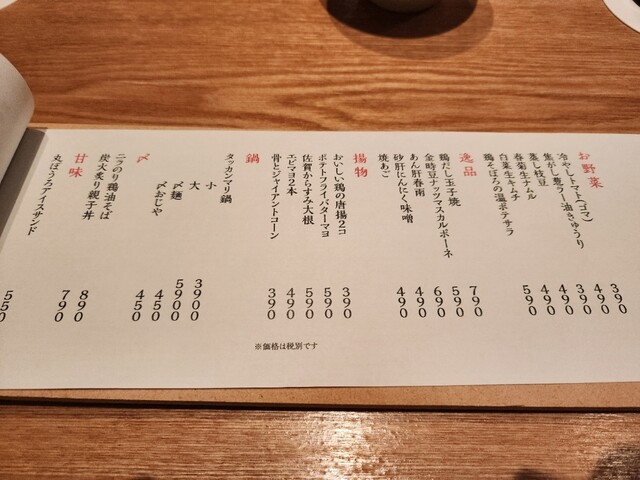 お野菜
冷やしトマト(ゴマ) 390
焦がし葱ラー油きゅうり 490
蒸し枝豆 390
春菊生ナムル 490
白菜生キムチ 490
鶏そぼろの温ポテサラ 590
逸品
鶏だし玉子焼 790
金時豆ナッツマスカルポーネ 590
あん肝春南 690
砂肝にんにく味噌 490
焼あご 490
揚物
おいしい鶏の唐揚2コ 390
ポテトフライバターマヨ 590
佐賀からすみ大根 590
エビマヨ2本 490
骨とジャイアントコーン 390
鍋
タッカンマリ鍋
小 3900
大 5900
〆麺 450
〆おじや 450
〆
ニラのり鶏油そば 890
炭火炙り親子丼 790
甘味
丸ぼうろアイスサンド 550
※価格は税別です